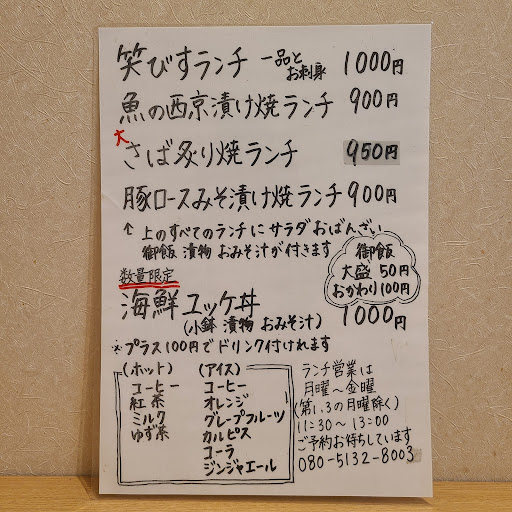 笑びすランチ 一品とお刺身 1000円
魚の西京漬け焼ランチ 900円
大さば炙り焼ランチ 950円
豚ロースみそ漬け焼ランチ 900円
↑上のすべてのランチにサラダおばんざい
御飯 漬物 おみそ汁が付きます
御飯
大盛 50円
おかわり100円
数量限定
海鮮ユッケ丼 1000円
(小鉢 漬物 おみそ汁)
※プラス100円でドリンク付けれます
(ホット)
コーヒー
紅茶
ミルク
ゆず茶
(アイス)
コーヒー
オレンジ
グレープフルーツ
カルピス
コーラ
ジンジャエール
ランチ営業は
月曜~金曜
(第1.3の月曜除く)
11:30~13:00
ご予約お待ちしています
080-5132-8003